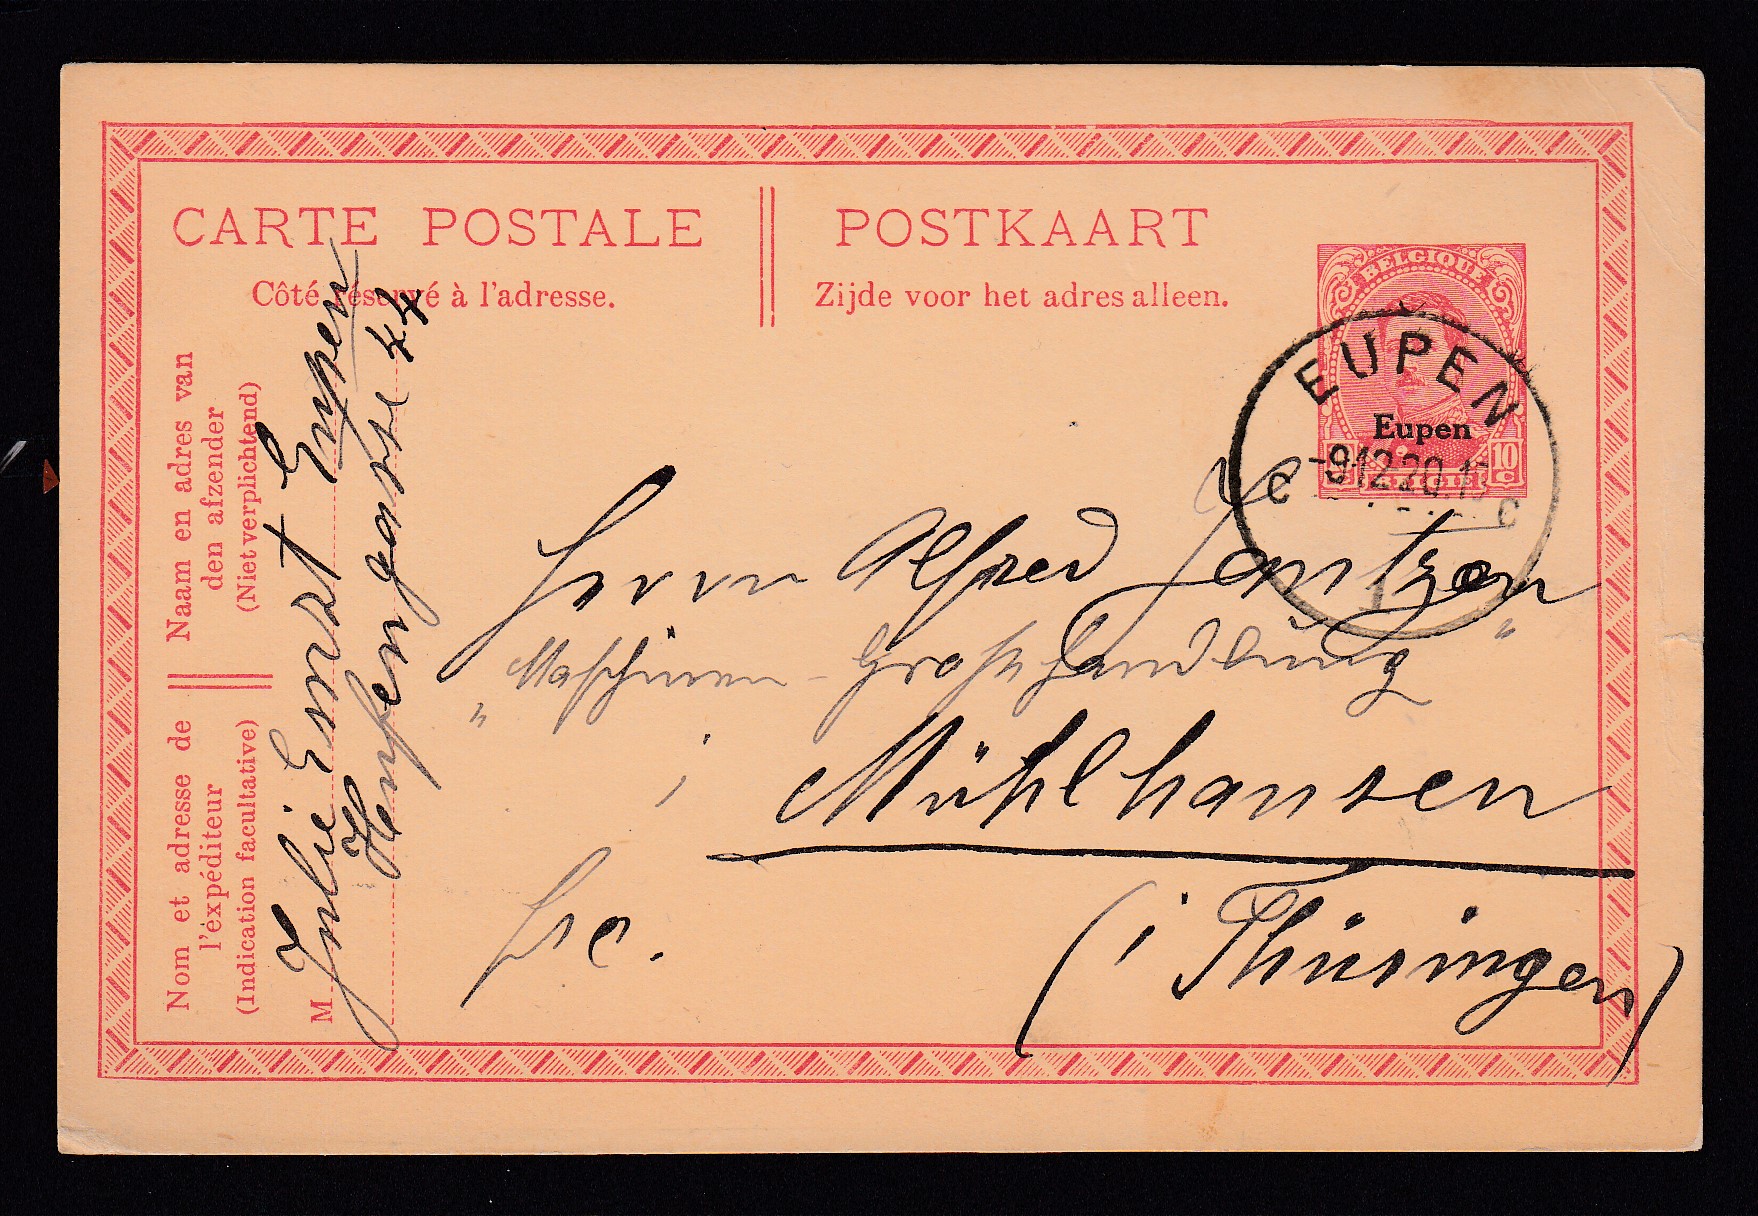 CARTE POSTALE
Côté réservé à l'adresse.
POSTKAART
Zijde voor het adres alleen.
BELGIQUE
Eupen
10 C
BELGIË
EUPEN
-9 12 20.1
C C
Naam en adres van
den afzender
(Niet verplichtend)
Nom et adresse de
l'éxpéditeur
(Indication facultative)
M
Julie Ernst Eupen
gasse 44
Herrn Alfred Jentzen
"Maschinen-Großhandlung"
i
Mühlhausen
(i Thüringen)